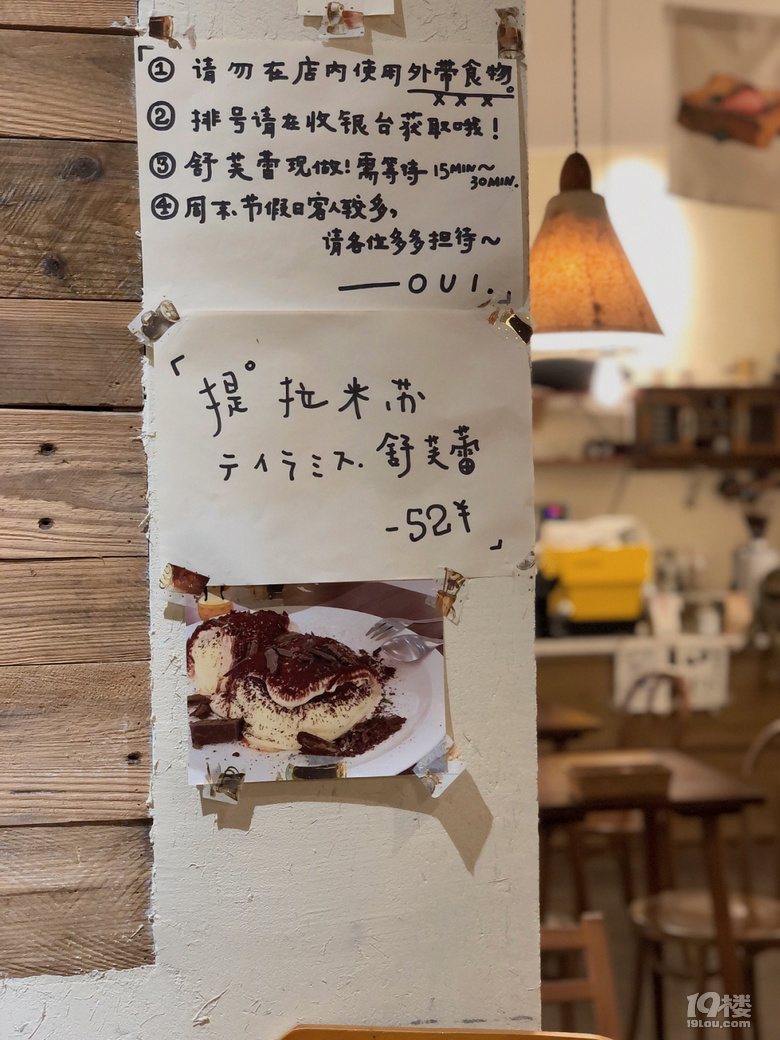 「① 请勿在店内使用外带食物。
x x x
② 排号请在收银台获取哦!
③ 舒芙蕾现做!需等待 15MIN~
30MIN.
④ 周末节假日客人较多,
请各位多多担待~
——OUI.」
「提°拉米苏
ティラミス.舒芙蕾
-52¥」
19楼
19lou.com